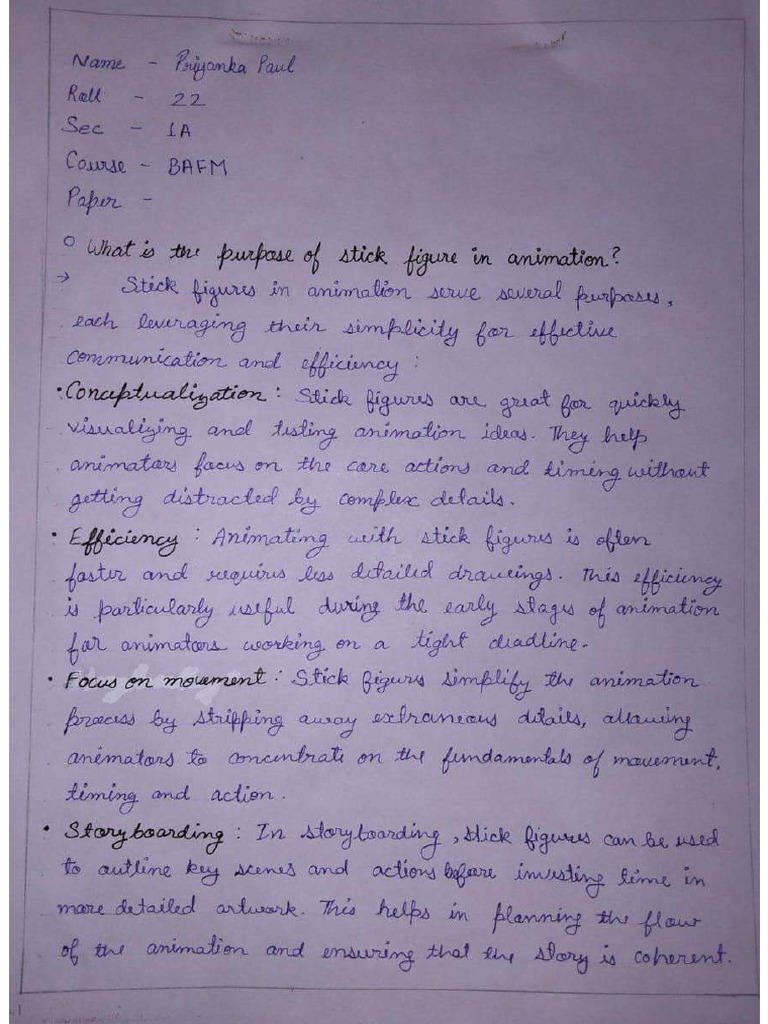 Name - Priyanka Paul
Roll - 22
Sec - 1A
Course - BAFM
Paper -
○ What is the purpose of stick figure in animation?
→ Stick figures in animation serve several purposes,
each leveraging their simplicity for effective
communication and efficiency :
• Conceptualization : Stick figures are great for quickly
visualizing and testing animation ideas. They help
animators focus on the core actions and timing without
getting distracted by complex details.
• Efficiency : Animating with stick figures is often
faster and requires less detailed drawings. This efficiency
is particularly useful during the early stages of animation
for animators working on a tight deadline.
• Focus on movement : Stick figures simplify the animation
process by stripping away extraneous details, allowing
animators to concentrate on the fundamentals of movement,
timing and action.
• Storyboarding : In storyboarding, stick figures can be used
to outline key scenes and actions before investing time in
more detailed artwork. This helps in planning the flow
of the animation and ensuring that the story is coherent.